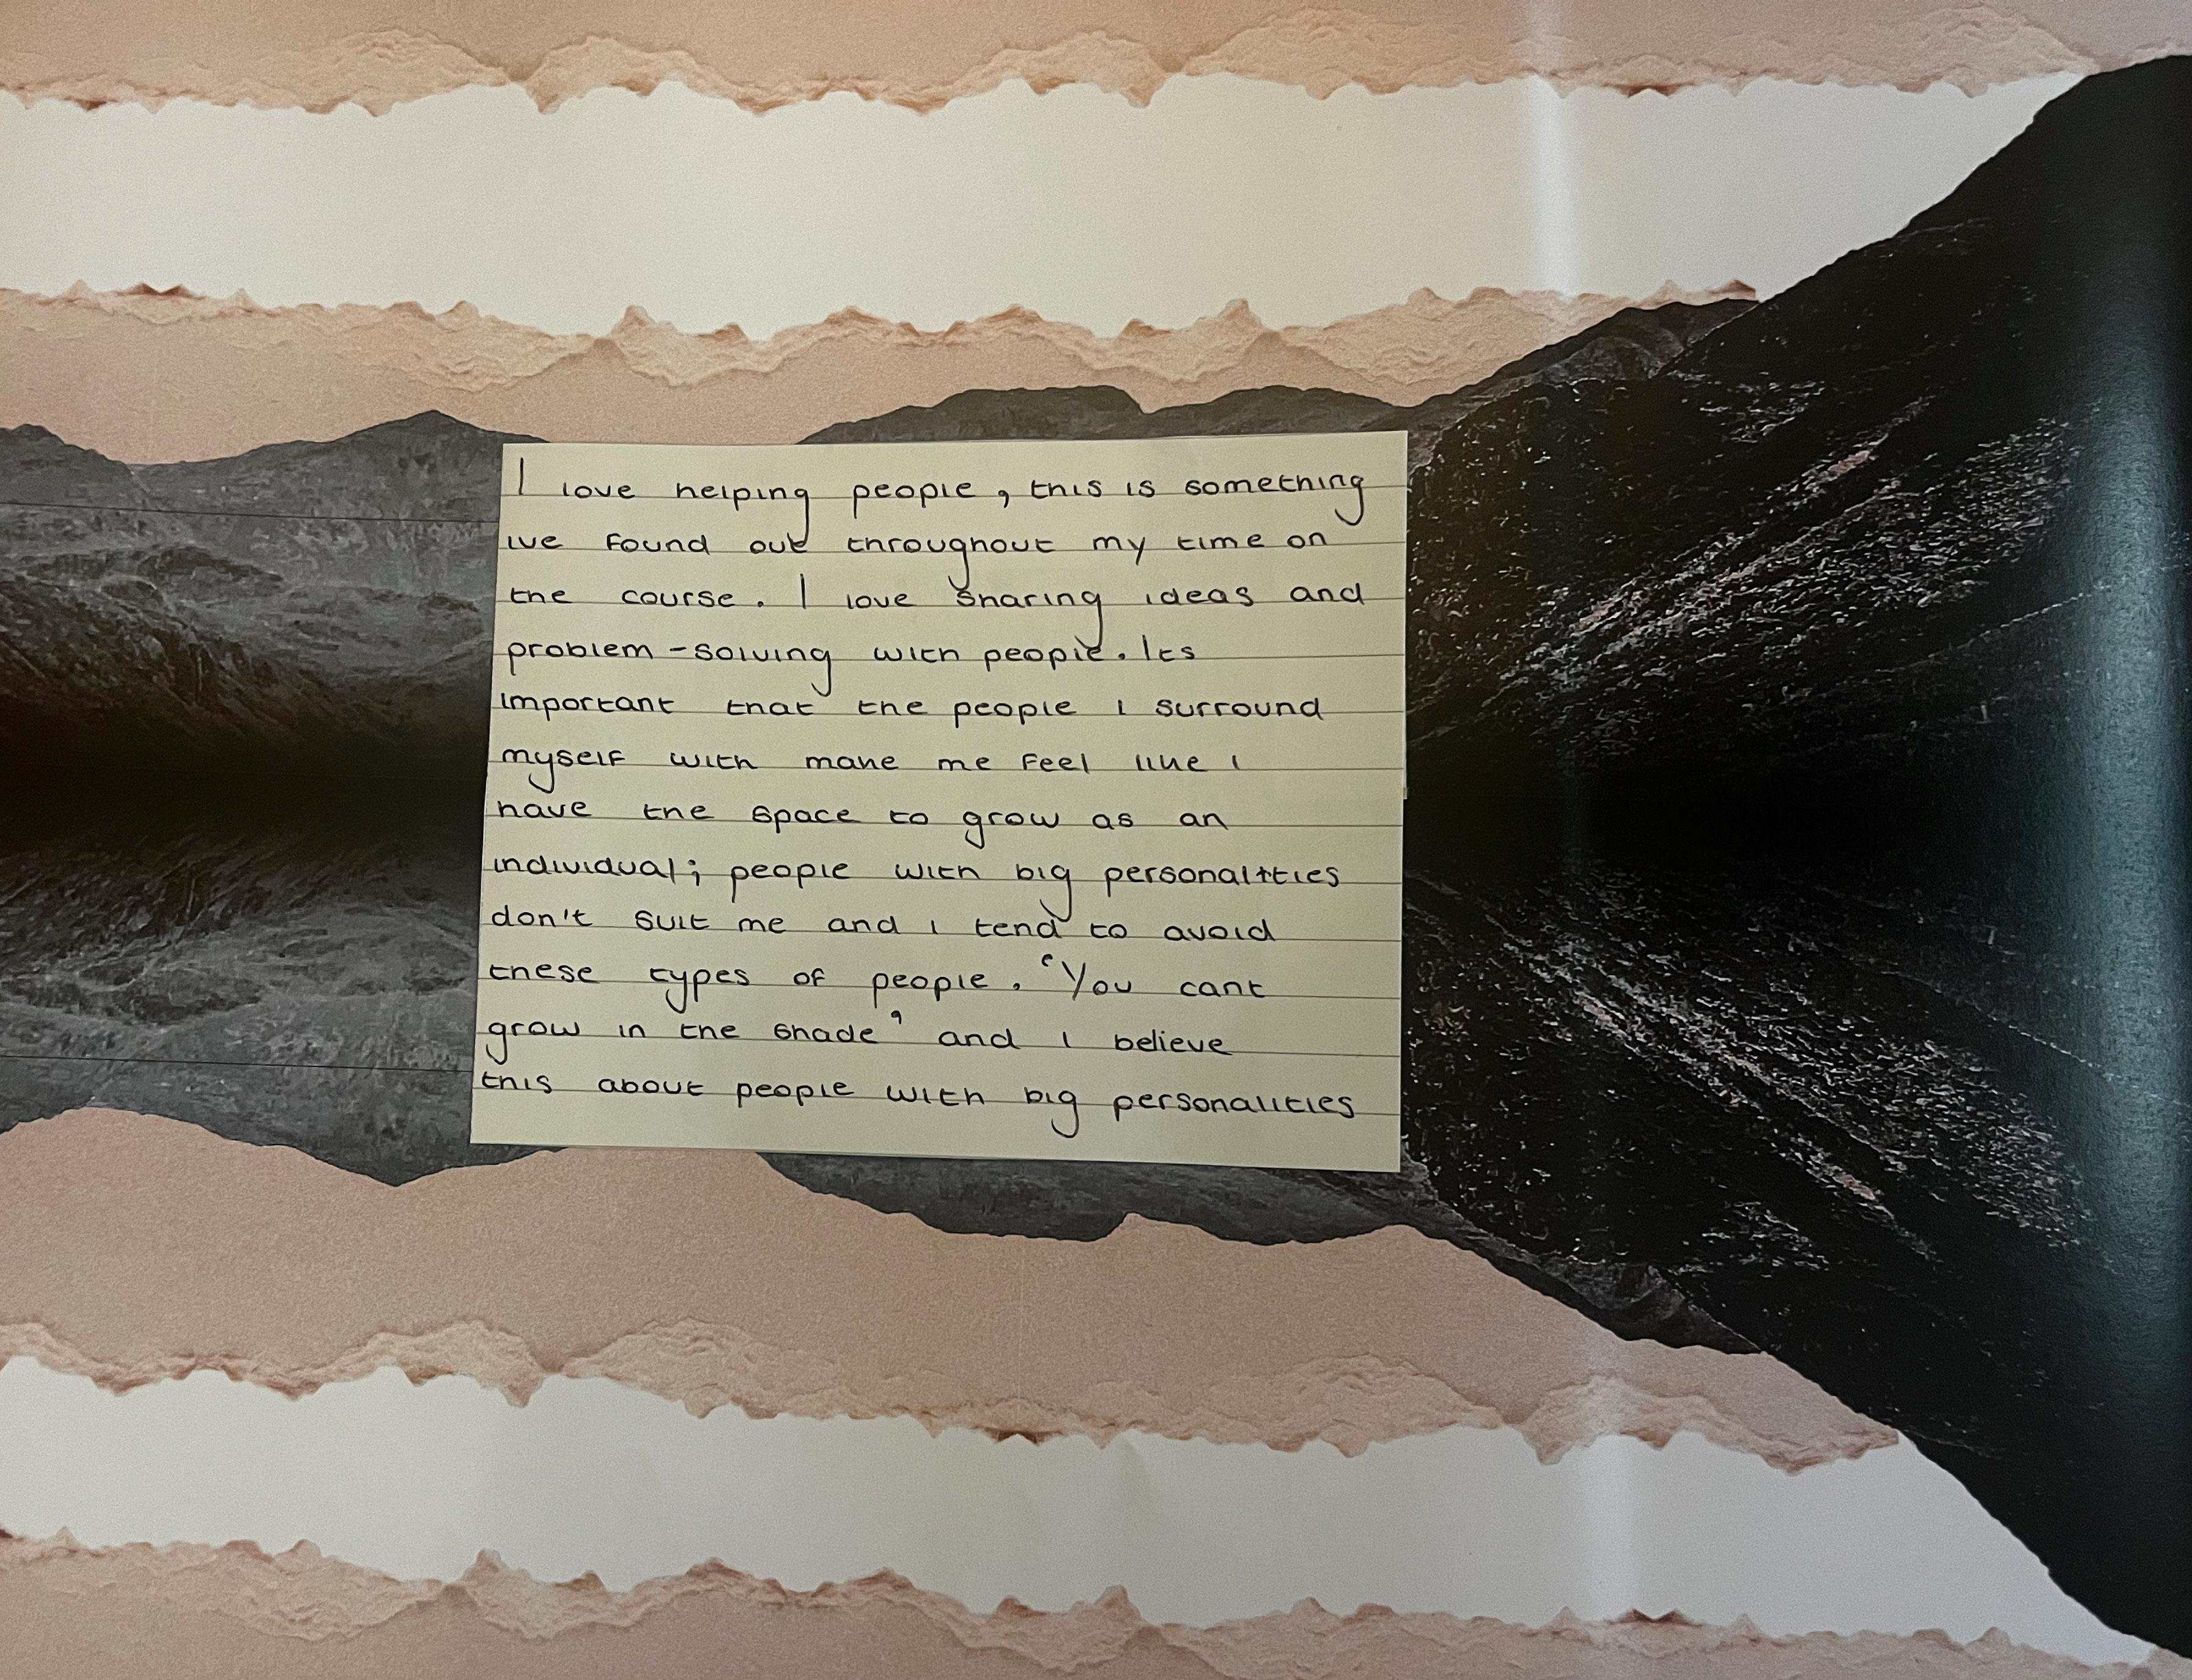 I love helping people, this is something
ive found out throughout my time on
the course. I love sharing ideas and
problem-solving with people. Its
important that the people i surround
myself with make me feel like i
have the space to grow as an
individual; people with big personalities
don't suit me and i tend to avoid
these types of people. 'You cant
grow in the shade' and i believe
this about people with big personalities